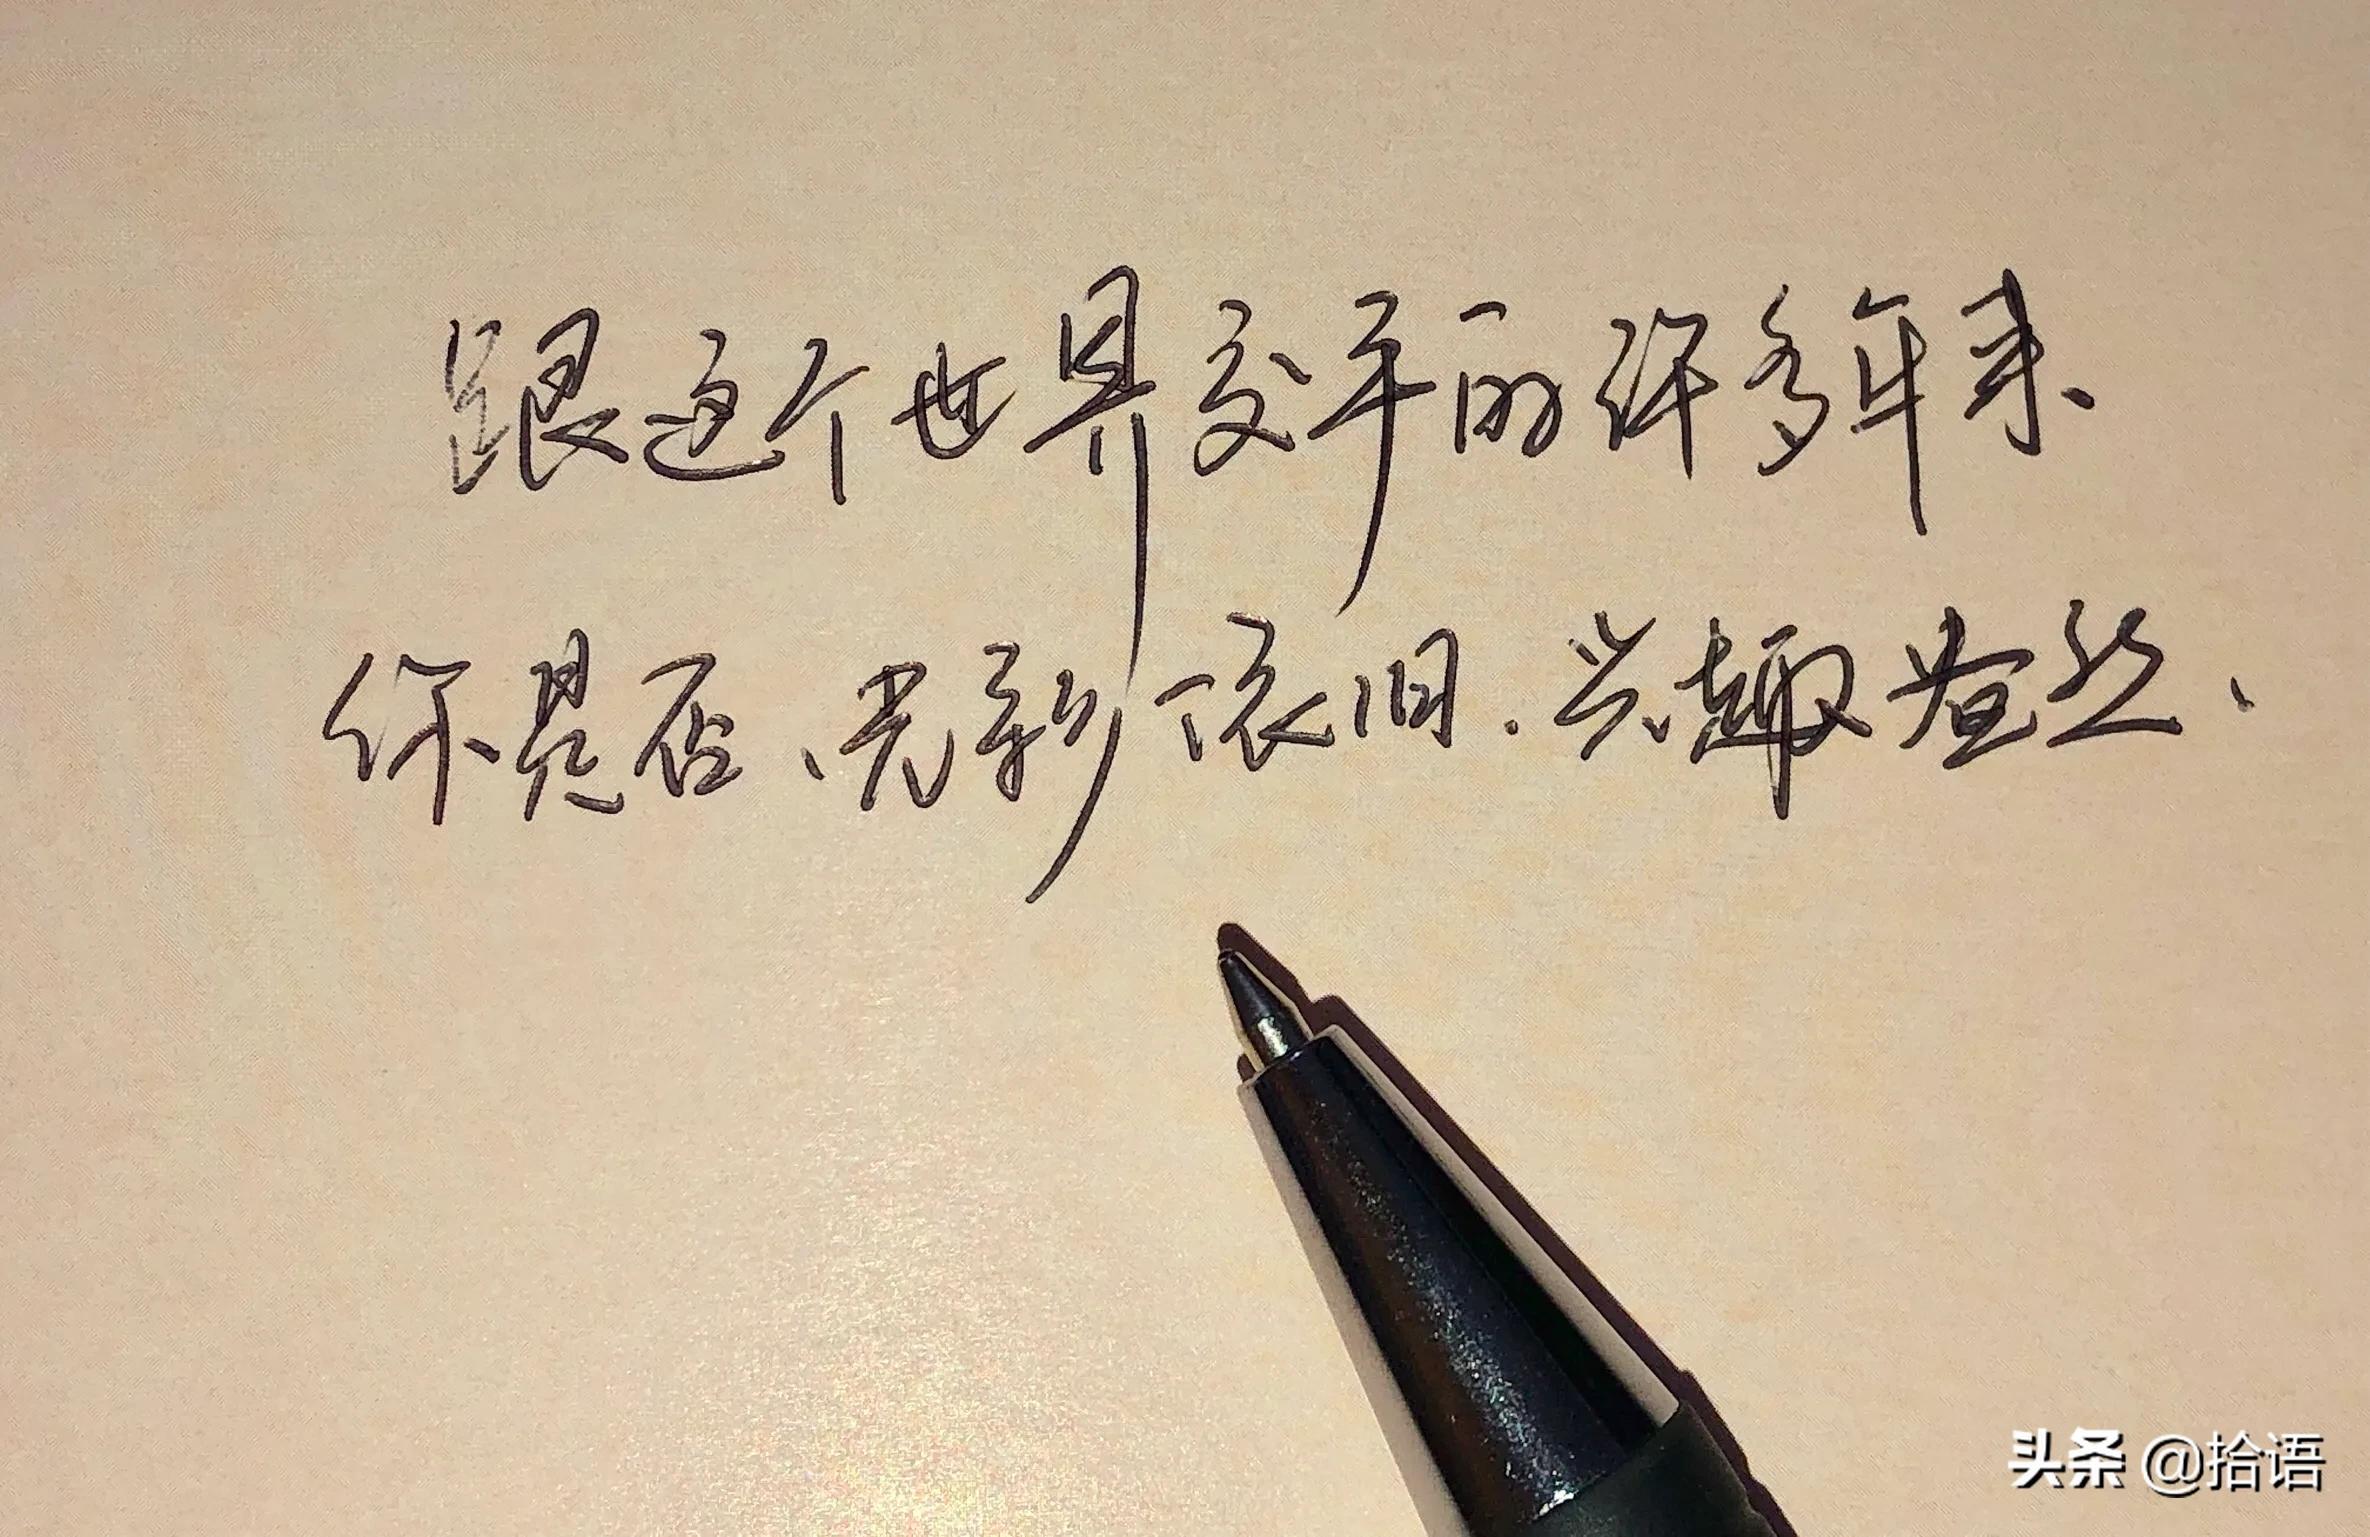 跟这个世界交手的许多年来、
你是否、光彩依旧.兴趣盎然、
头条 @拾语